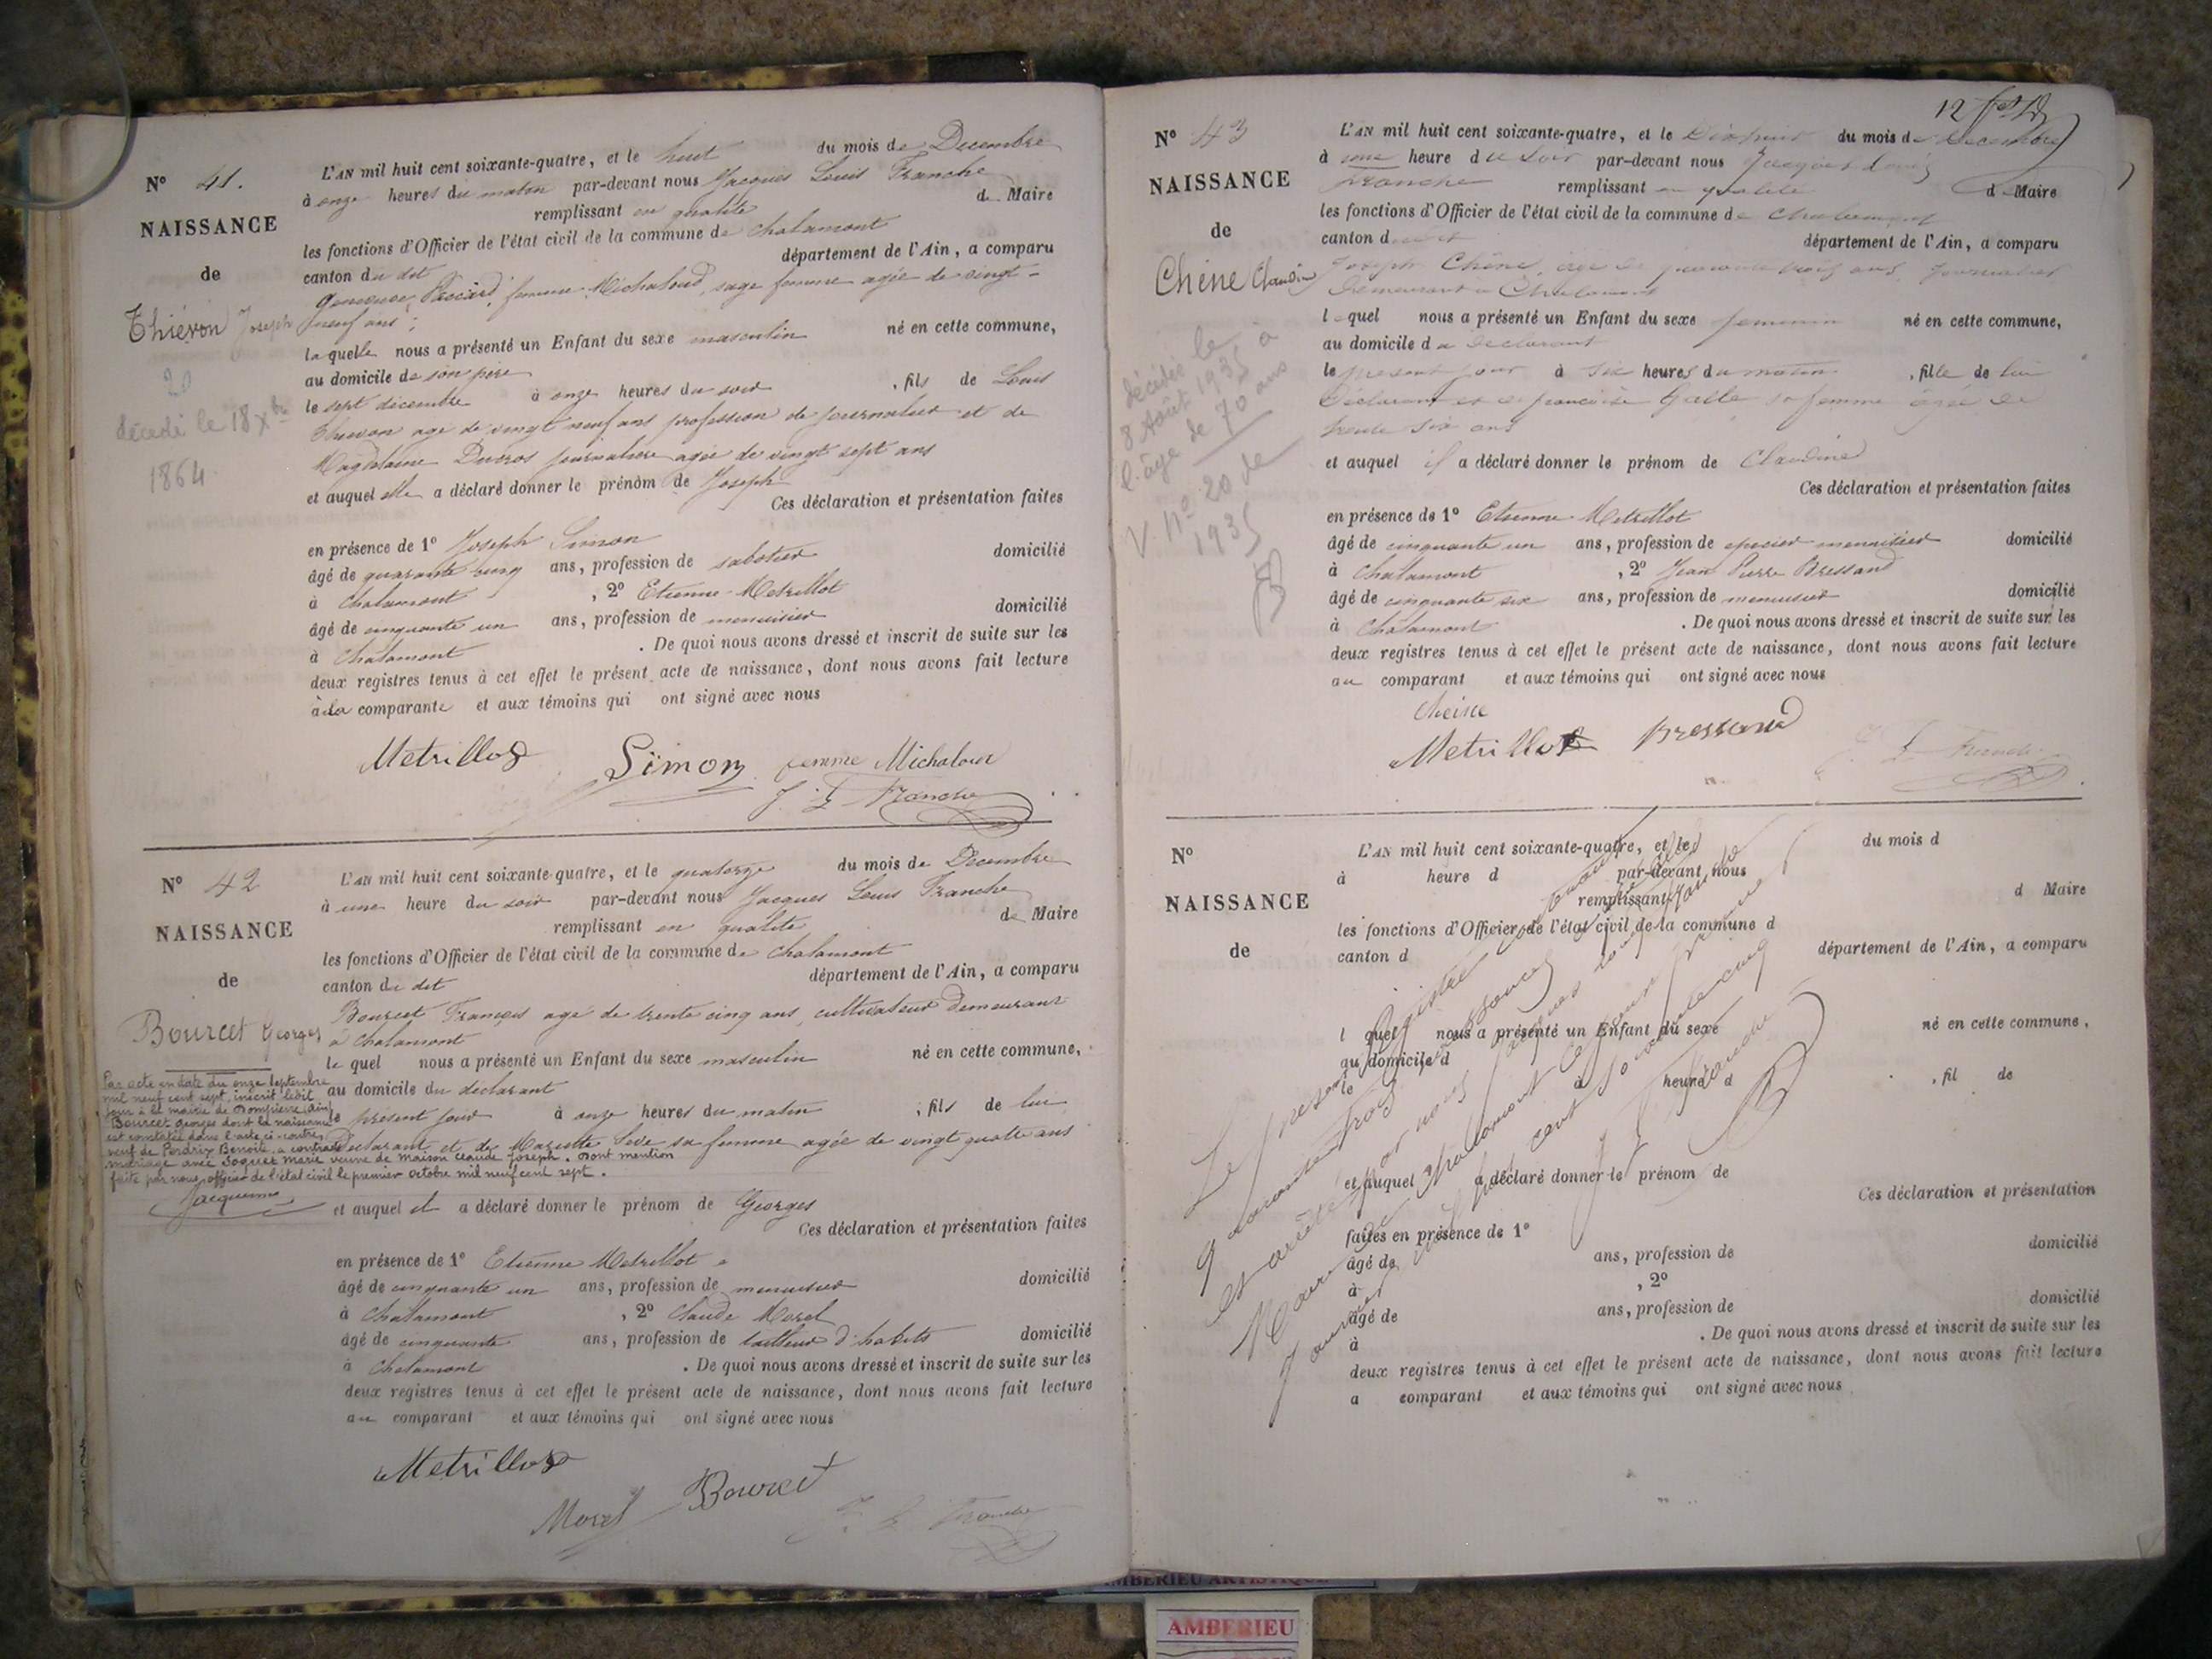 N° 41.
NAISSANCE
de
Thiévon Joseph
20
décédé le 18 Xbre
1864
L'AN mil huit cent soixante-quatre, et le huit du mois de Decembre
à onze heures du matin par-devant nous Jacques Louis Franche
remplissant en qualité de Maire
les fonctions d'Officier de l'état civil de la commune de Chalamont
canton du dit département de l'Ain, a comparu
Paccard femme Michaloud, sage femme agée de vingt-
neuf ans;
laquelle nous a présenté un Enfant du sexe masculin né en cette commune,
au domicile de son père
le sept décembre à onze heures du soir, fils de Louis
Thievon agé de vingt neuf ans profession de journalier et de
Magdelaine Ducros journaliere agée de vingt sept ans
et auquel elle a déclaré donner le prénom de Joseph
Ces déclaration et présentation faites
en présence de 1° Joseph Simon
âgé de quarante cinq ans, profession de sabotier domicilié
à Chalamont, 2° Etienne Metrillot
âgé de cinquante un ans, profession de menuisier domicilié
à Chalamont. De quoi nous avons dressé et inscrit de suite sur les
deux registres tenus à cet effet le présent acte de naissance, dont nous avons fait lecture
à la comparante et aux témoins qui ont signé avec nous
Metrillot Simon femme Michaloud
J. L Franche
N° 42
NAISSANCE
de
Bourcet Georges
Par acte en date du onze Septembre
mil neuf cent sept, inscrit ledit
jour à la mairie de Dompierre (Ain)
Bourcet Georges dont la naissance
est constatée dans l'acte ci-contre,
veuf de Perdrix Benoite, a contracté
mariage avec Joguet Marie veuve de Maison Claude Joseph. Dont mention
faite par nous officier de l'état civil le premier octobre mil neuf cent sept.
Jacquemin
L'AN mil huit cent soixante-quatre, et le quatorze du mois de Decembre
à une heure du soir par-devant nous Jacques Louis Franche
remplissant en qualité de Maire
les fonctions d'Officier de l'état civil de la commune de Chalamont
canton du dit département de l'Ain, a comparu
Bourcet François agé de trente cinq ans, cultivateur demeurant
à Chalamont
lequel nous a présenté un Enfant du sexe masculin né en cette commune,
au domicile du déclarant
le présent jour à onze heures du matin, fils de lui
déclarant et de Mariette sa femme agée de vingt quatre ans
et auquel il a déclaré donner le prénom de Georges
Ces déclaration et présentation faites
en présence de 1° Etienne Metrillot
âgé de cinquante un ans, profession de menuisier domicilié
à Chalamont, 2° Claude Morel
âgé de cinquante ans, profession de tailleur d'habits domicilié
à Chalamont. De quoi nous avons dressé et inscrit de suite sur les
deux registres tenus à cet effet le présent acte de naissance, dont nous avons fait lecture
au comparant et aux témoins qui ont signé avec nous
Metrillot
Morel Bourcet J. L Franche
12
N° 43
NAISSANCE
de
Chêne Claudine
décédée le
8 Août 1935 à
l'âge de 70 ans
V. N° 20 de
1935
L'AN mil huit cent soixante-quatre, et le Dixhuit du mois de Decembre
à une heure du soir par-devant nous Jacques Louis
Franche remplissant en qualité de Maire
les fonctions d'Officier de l'état civil de la commune de Chalamont
canton du dit département de l'Ain, a comparu
Joseph Chêne, agé de quarante trois ans, journalier
demeurant à Chalamont
lequel nous a présenté un Enfant du sexe feminin né en cette commune,
au domicile du declarant
le présent jour à six heures du matin, fille de lui
déclarant et de françoise Galle sa femme agée de
trente six ans
et auquel il a déclaré donner le prénom de Claudine
Ces déclaration et présentation faites
en présence de 1° Etienne Metrillot
âgé de cinquante un ans, profession de menuisier domicilié
à Chalamont, 2° Jean Pierre Bressand
âgé de cinquante six ans, profession de menuisier domicilié
à Chalamont. De quoi nous avons dressé et inscrit de suite sur les
deux registres tenus à cet effet le présent acte de naissance, dont nous avons fait lecture
au comparant et aux témoins qui ont signé avec nous
Cheine
Metrillot Bressand J. L Franche
N°
NAISSANCE
de
L'AN mil huit cent soixante-quatre, et le du mois d
à heure d par-devant nous
remplissant d Maire
les fonctions d'Officier de l'état civil de la commune d
canton d département de l'Ain, a comparu
l quel nous a présenté un Enfant du sexe né en cette commune,
au domicile d
le à heure d, fil de
et auquel a déclaré donner le prénom de
Ces déclaration et présentation
faites en présence de 1°
âgé de ans, profession de domicilié
à, 2°
âgé de ans, profession de domicilié
à. De quoi nous avons dressé et inscrit de suite sur les
deux registres tenus à cet effet le présent acte de naissance, dont nous avons fait lecture
a comparant et aux témoins qui ont signé avec nous
Le present Registre
quarante trois naissances
et arrêté par nous Jacques Louis Franche
Maire de Chalamont le
janvier mil huit cent soixante cinq
J L Franche
AMBERIEU ARTISTIQUE
AMBERIEU